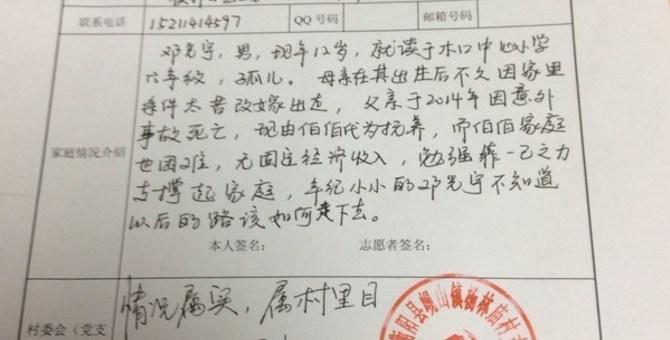 联系电话 15211414597 QQ号码 邮箱号码
家庭情况介绍
邓光宇,男,现年12岁,就读于水口中心小学
六年级,孤儿。母亲在其出生后不久因家里
条件太苦改嫁出走,父亲于2014年因意外
事故死亡,现由伯伯代为抚养,而伯伯家庭
也困难,无固定经济收入,勉强靠一己之力
支撑起家庭,年纪小小的邓光宇不知道
以后的路该如何走下去。
本人签名: 志愿者签名:
村委会(党支
情况属实,属村里目
衡阳县岘山镇杨林庙村